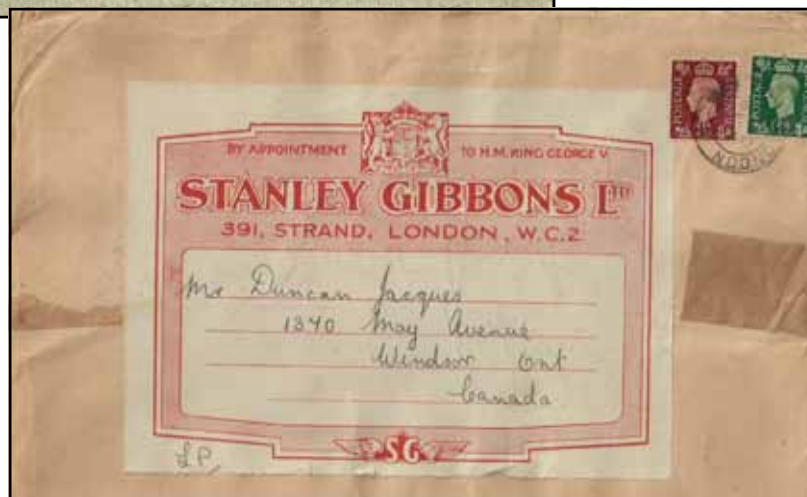 BY APPOINTMENT TO H.M. KING GEORGE V.
STANLEY GIBBONS LTD
391, STRAND, LONDON, W.C.2
Mr Duncan Jacques
1370 May Avenue
Windsor Ont
Canada
SG
POSTAGE
POSTAGE